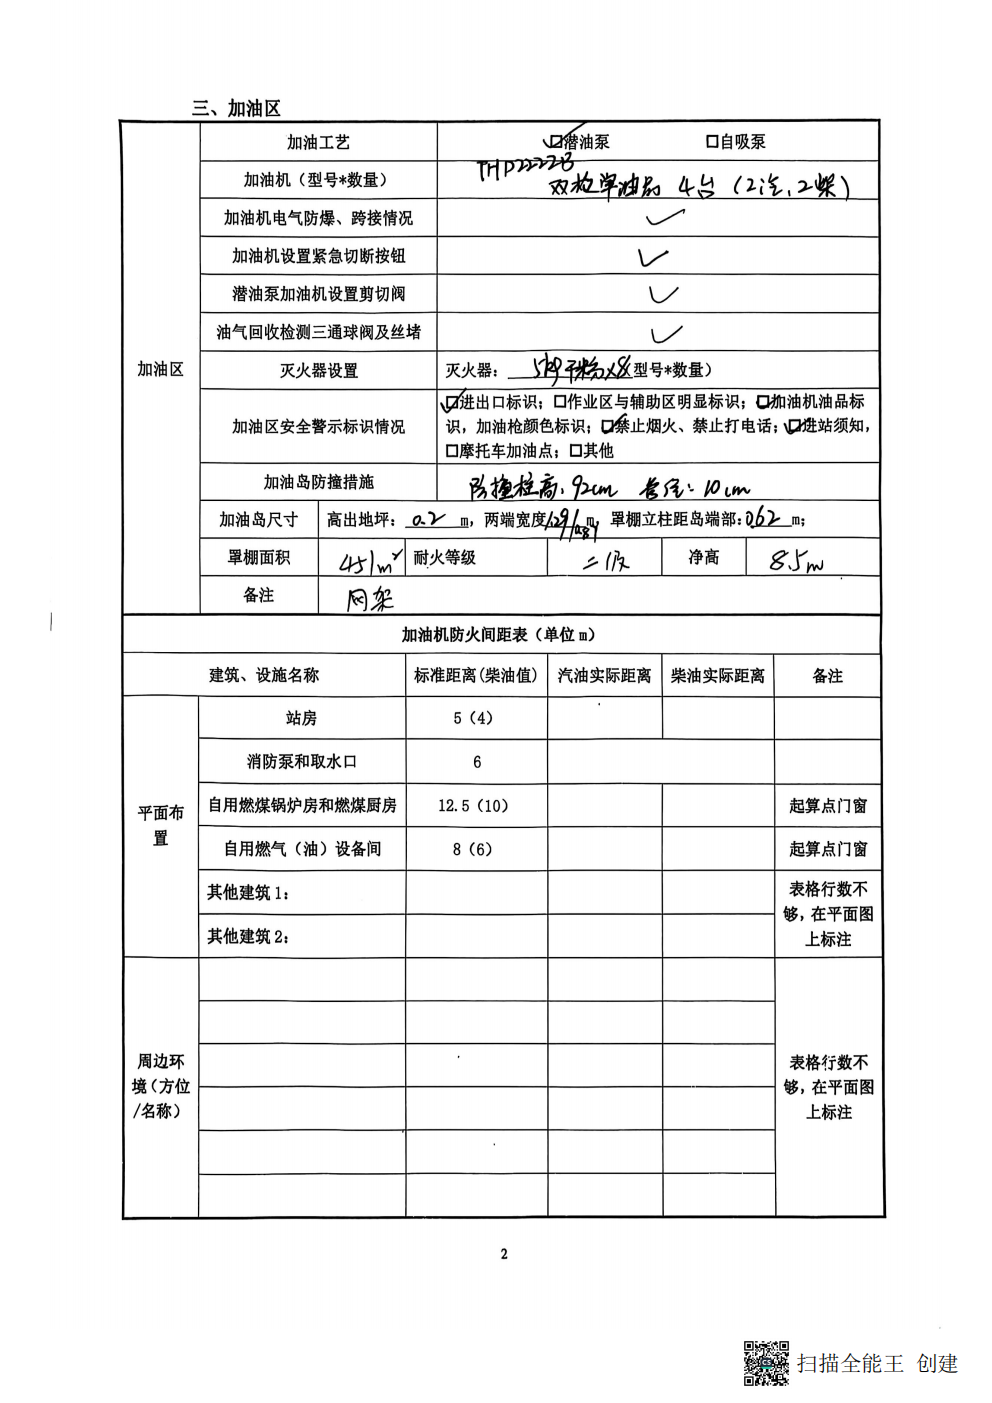 三、加油区
加油区
加油工艺 ☑潜油泵 □自吸泵
加油机（型号*数量） THP2222B
双枪单油品 4台（2汽，2柴）
加油机电气防爆、跨接情况 ✓
加油机设置紧急切断按钮 ✓
潜油泵加油机设置剪切阀 ✓
油气回收检测三通球阀及丝堵 ✓
灭火器设置 灭火器：5kg干粉×8（型号*数量）
加油区安全警示标识情况
☑进出口标识；□作业区与辅助区明显标识；☑加油机油品标
识，加油枪颜色标识；☑禁止烟火、禁止打电话；☑进站须知，
□摩托车加油点；□其他
加油岛防撞措施 防撞柱高：92cm 管径：10cm
加油岛尺寸 高出地坪：0.2 m，两端宽度 1.29/ m，罩棚立柱距岛端部：0.62 m；
罩棚面积 451m² 耐火等级 二级 净高 8.5m
备注 网架
加油机防火间距表（单位 m）
建筑、设施名称 标准距离(柴油值) 汽油实际距离 柴油实际距离 备注
平面布
置
站房 5（4）
消防泵和取水口 6
自用燃煤锅炉房和燃煤厨房 12.5（10） 起算点门窗
自用燃气（油）设备间 8（6） 起算点门窗
其他建筑 1：
其他建筑 2：
表格行数不
够，在平面图
上标注
周边环
境（方位
/名称）
表格行数不
够，在平面图
上标注
2
扫描全能王 创建